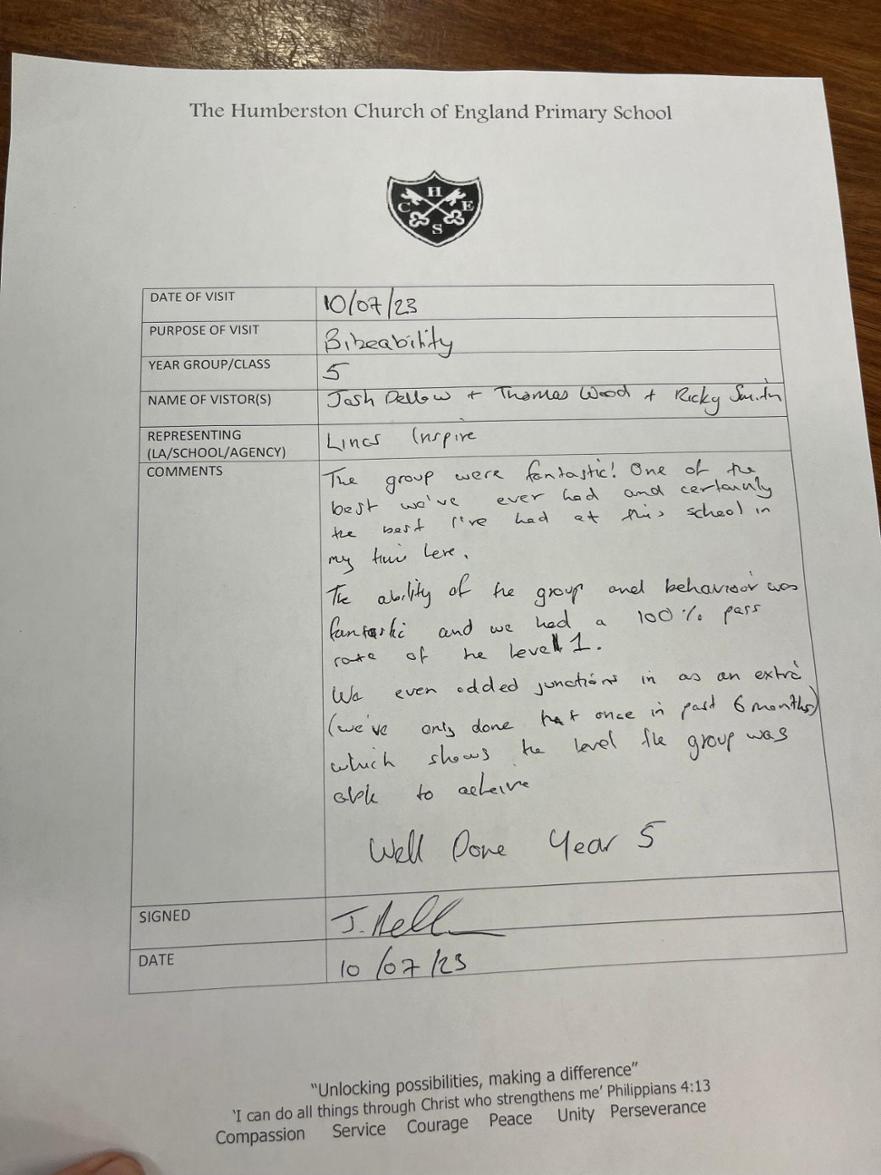 The Humberston Church of England Primary School
H
C E
S
DATE OF VISIT 10/07/23
PURPOSE OF VISIT Bikeability
YEAR GROUP/CLASS 5
NAME OF VISTOR(S) Josh Dellow + Thomas Wood + Ricky Smith
REPRESENTING
(LA/SCHOOL/AGENCY) Lincs Inspire
COMMENTS
The group were fantastic! One of the
best we've ever had and certainly
the best I've had at this school in
my time here.
The ability of the group and behaviour was
fantastic and we had a 100% pass
rate of the level 1.
We even added junctions in as an extra
(we've only done that once in past 6 months)
which shows the level the group was
able to acheive
Well Done Year 5
SIGNED J. Dell
DATE 10/07/23
"Unlocking possibilities, making a difference"
'I can do all things through Christ who strengthens me' Philippians 4:13
Compassion Service Courage Peace Unity Perseverance